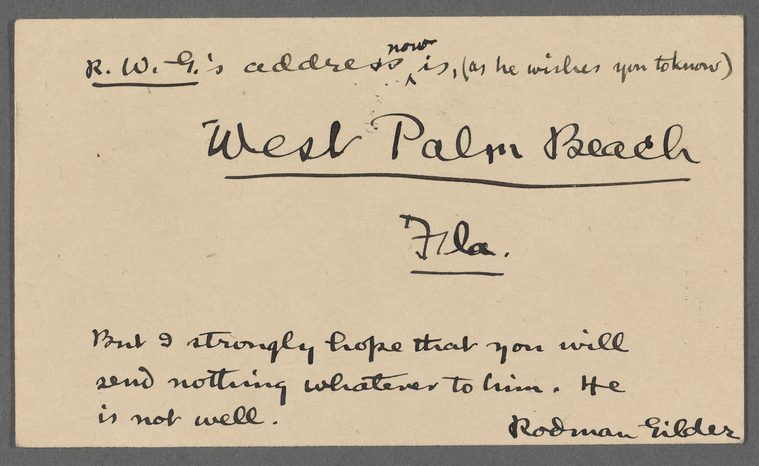 R. W. G.'s address now is, (as he wishes you to know)
West Palm Beach
Fla.
But I strongly hope that you will
send nothing whatever to him. He
is not well.
Rodman Gilder